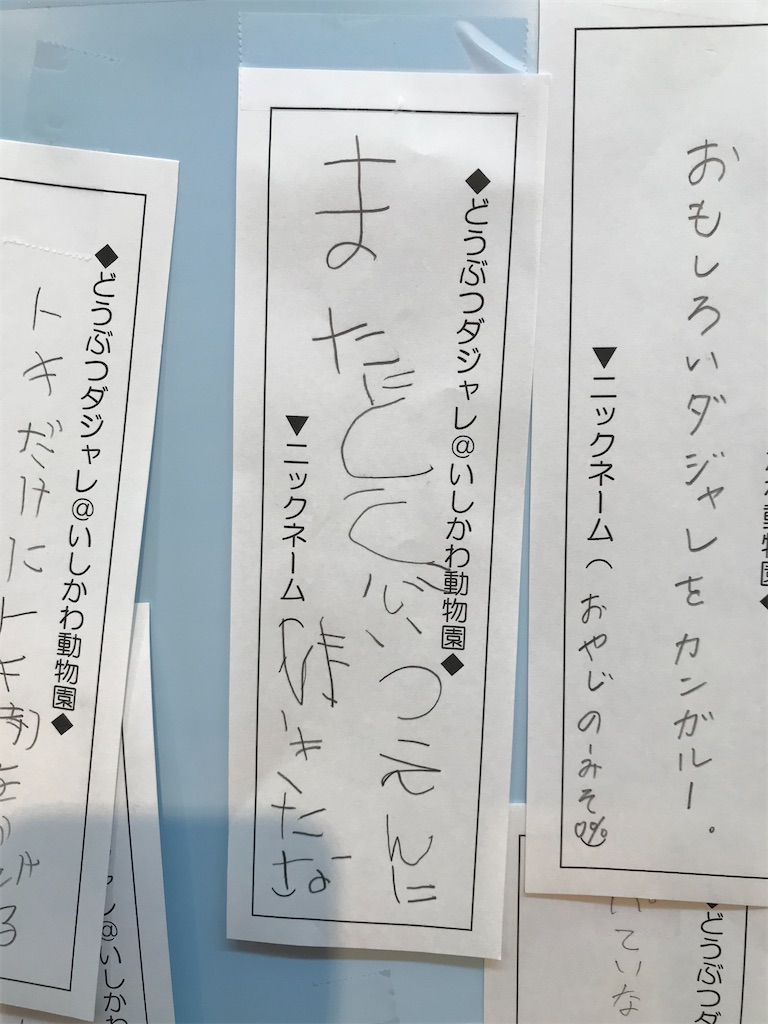 動物園◆
おもしろいダジャレをカンガルー。
▼ニックネーム(おやじのーみそ
◆どうぶつダジャレ@いしかわ動物園◆
またどうぶつえんに
▼ニックネーム
◆どうぶつダジャレ@いしかわ動物園◆
トキだけにトキ
◆どうぶつダ
ていな
レ@いしかわ